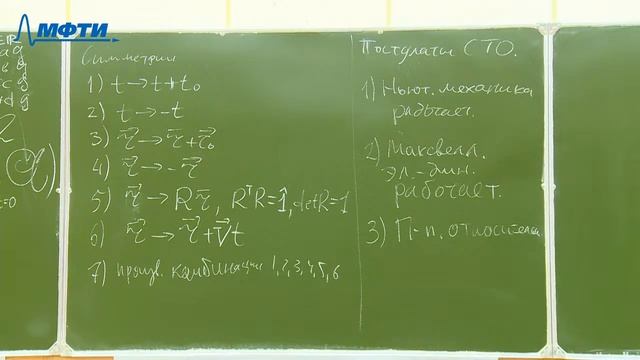 МФТИ
Симметрии
1) t → t+t₀
2) t → -t
3) r⃗ → r⃗ + r⃗₀
4) r⃗ → -r⃗
5) r⃗ → R r⃗, RᵀR=1̂, det R=1
6) r⃗ → r⃗ + V⃗t
7) произв. комбинации 1,2,3,4,5,6
Постулаты СТО.
1) Ньют. механика
работает.
2) Максвелл.
эл.-дин.
работает.
3) П-п. относител
t=0